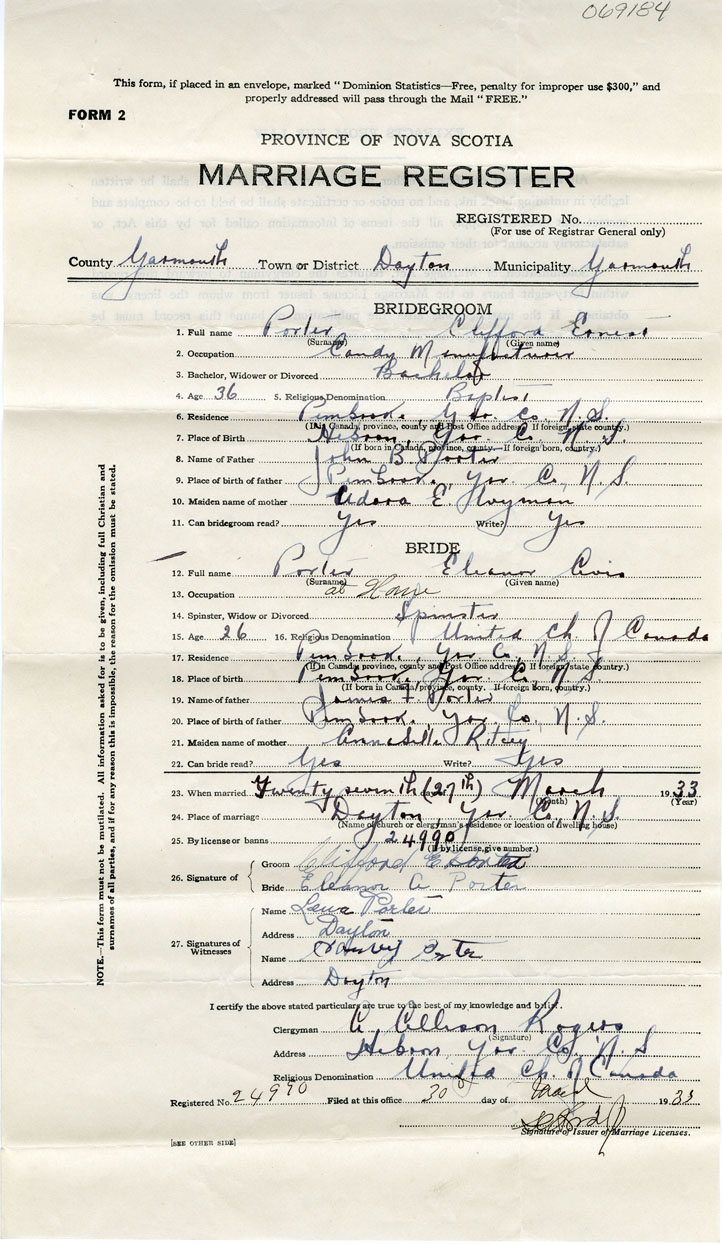 069184
This form, if placed in an envelope, marked "Dominion Statistics—Free, penalty for improper use $300," and
properly addressed will pass through the Mail "FREE."
FORM 2
PROVINCE OF NOVA SCOTIA
MARRIAGE REGISTER
REGISTERED No.
(For use of Registrar General only)
County Yarmouth Town or District Dayton Municipality Yarmouth
BRIDEGROOM
1. Full name Porter Clifford Ernest
(Surname) (Given name)
2. Occupation Candy Manufacturer
3. Bachelor, Widower or Divorced Bachelor
4. Age 36 5. Religious Denomination Baptist
6. Residence Pembrook, Yar. Co, N.S.
(If in Canada, province, county and Post Office address. If foreign, state country.)
7. Place of Birth Hebron, Yar. Co, N.S.
(If born in Canada, province, county. If foreign born, country.)
8. Name of Father John B Porter
9. Place of birth of father Pembrook, Yar Co, N.S.
10. Maiden name of mother E
11. Can bridegroom read? Yes Write? Yes
BRIDE
12. Full name Porter Eleanor Avis
(Surname) (Given name)
13. Occupation at Home
14. Spinster, Widow or Divorced Spinster
15. Age 26 16. Religious Denomination United Ch. of Canada
17. Residence Pembrook, Yar Co, N.S.
(If in Canada, province, county and Post Office address. If foreign, state country.)
18. Place of birth Pembrook, Yar Co, N.S.
(If born in Canada, province, county. If foreign born, country.)
19. Name of father James F Porter
20. Place of birth of father Pembrook, Yar. Co, N.S.
21. Maiden name of mother Annabelle
22. Can bride read? Yes Write? Yes
23. When married Twenty seventh (27th) day of March 1933
(Month) (Year)
24. Place of marriage Dayton, Yar Co, N.S.
(Name of church or clergyman's residence or location of dwelling house)
25. By license or banns 24990
(If by license, give number.)
26. Signature of
Groom Clifford E Porter
Bride Eleanor A Porter
27. Signatures of Witnesses
Name Lena Porter
Address Dayton
Name Porter
Address Dayton
I certify the above stated particulars are true to the best of my knowledge and belief.
Clergyman A. Allison Rogers
(Signature)
Address Hebron Yar Co, N.S
Religious Denomination United Ch. of Canada
Registered No. 24990 Filed at this office 30 day of March 1933
Signature of Issuer of Marriage Licenses.
[SEE OTHER SIDE]
NOTE.—This form must not be mutilated. All information asked for is to be given, including full Christian and
surnames of all parties, and if for any reason this is impossible, the reason for the omission must be stated.